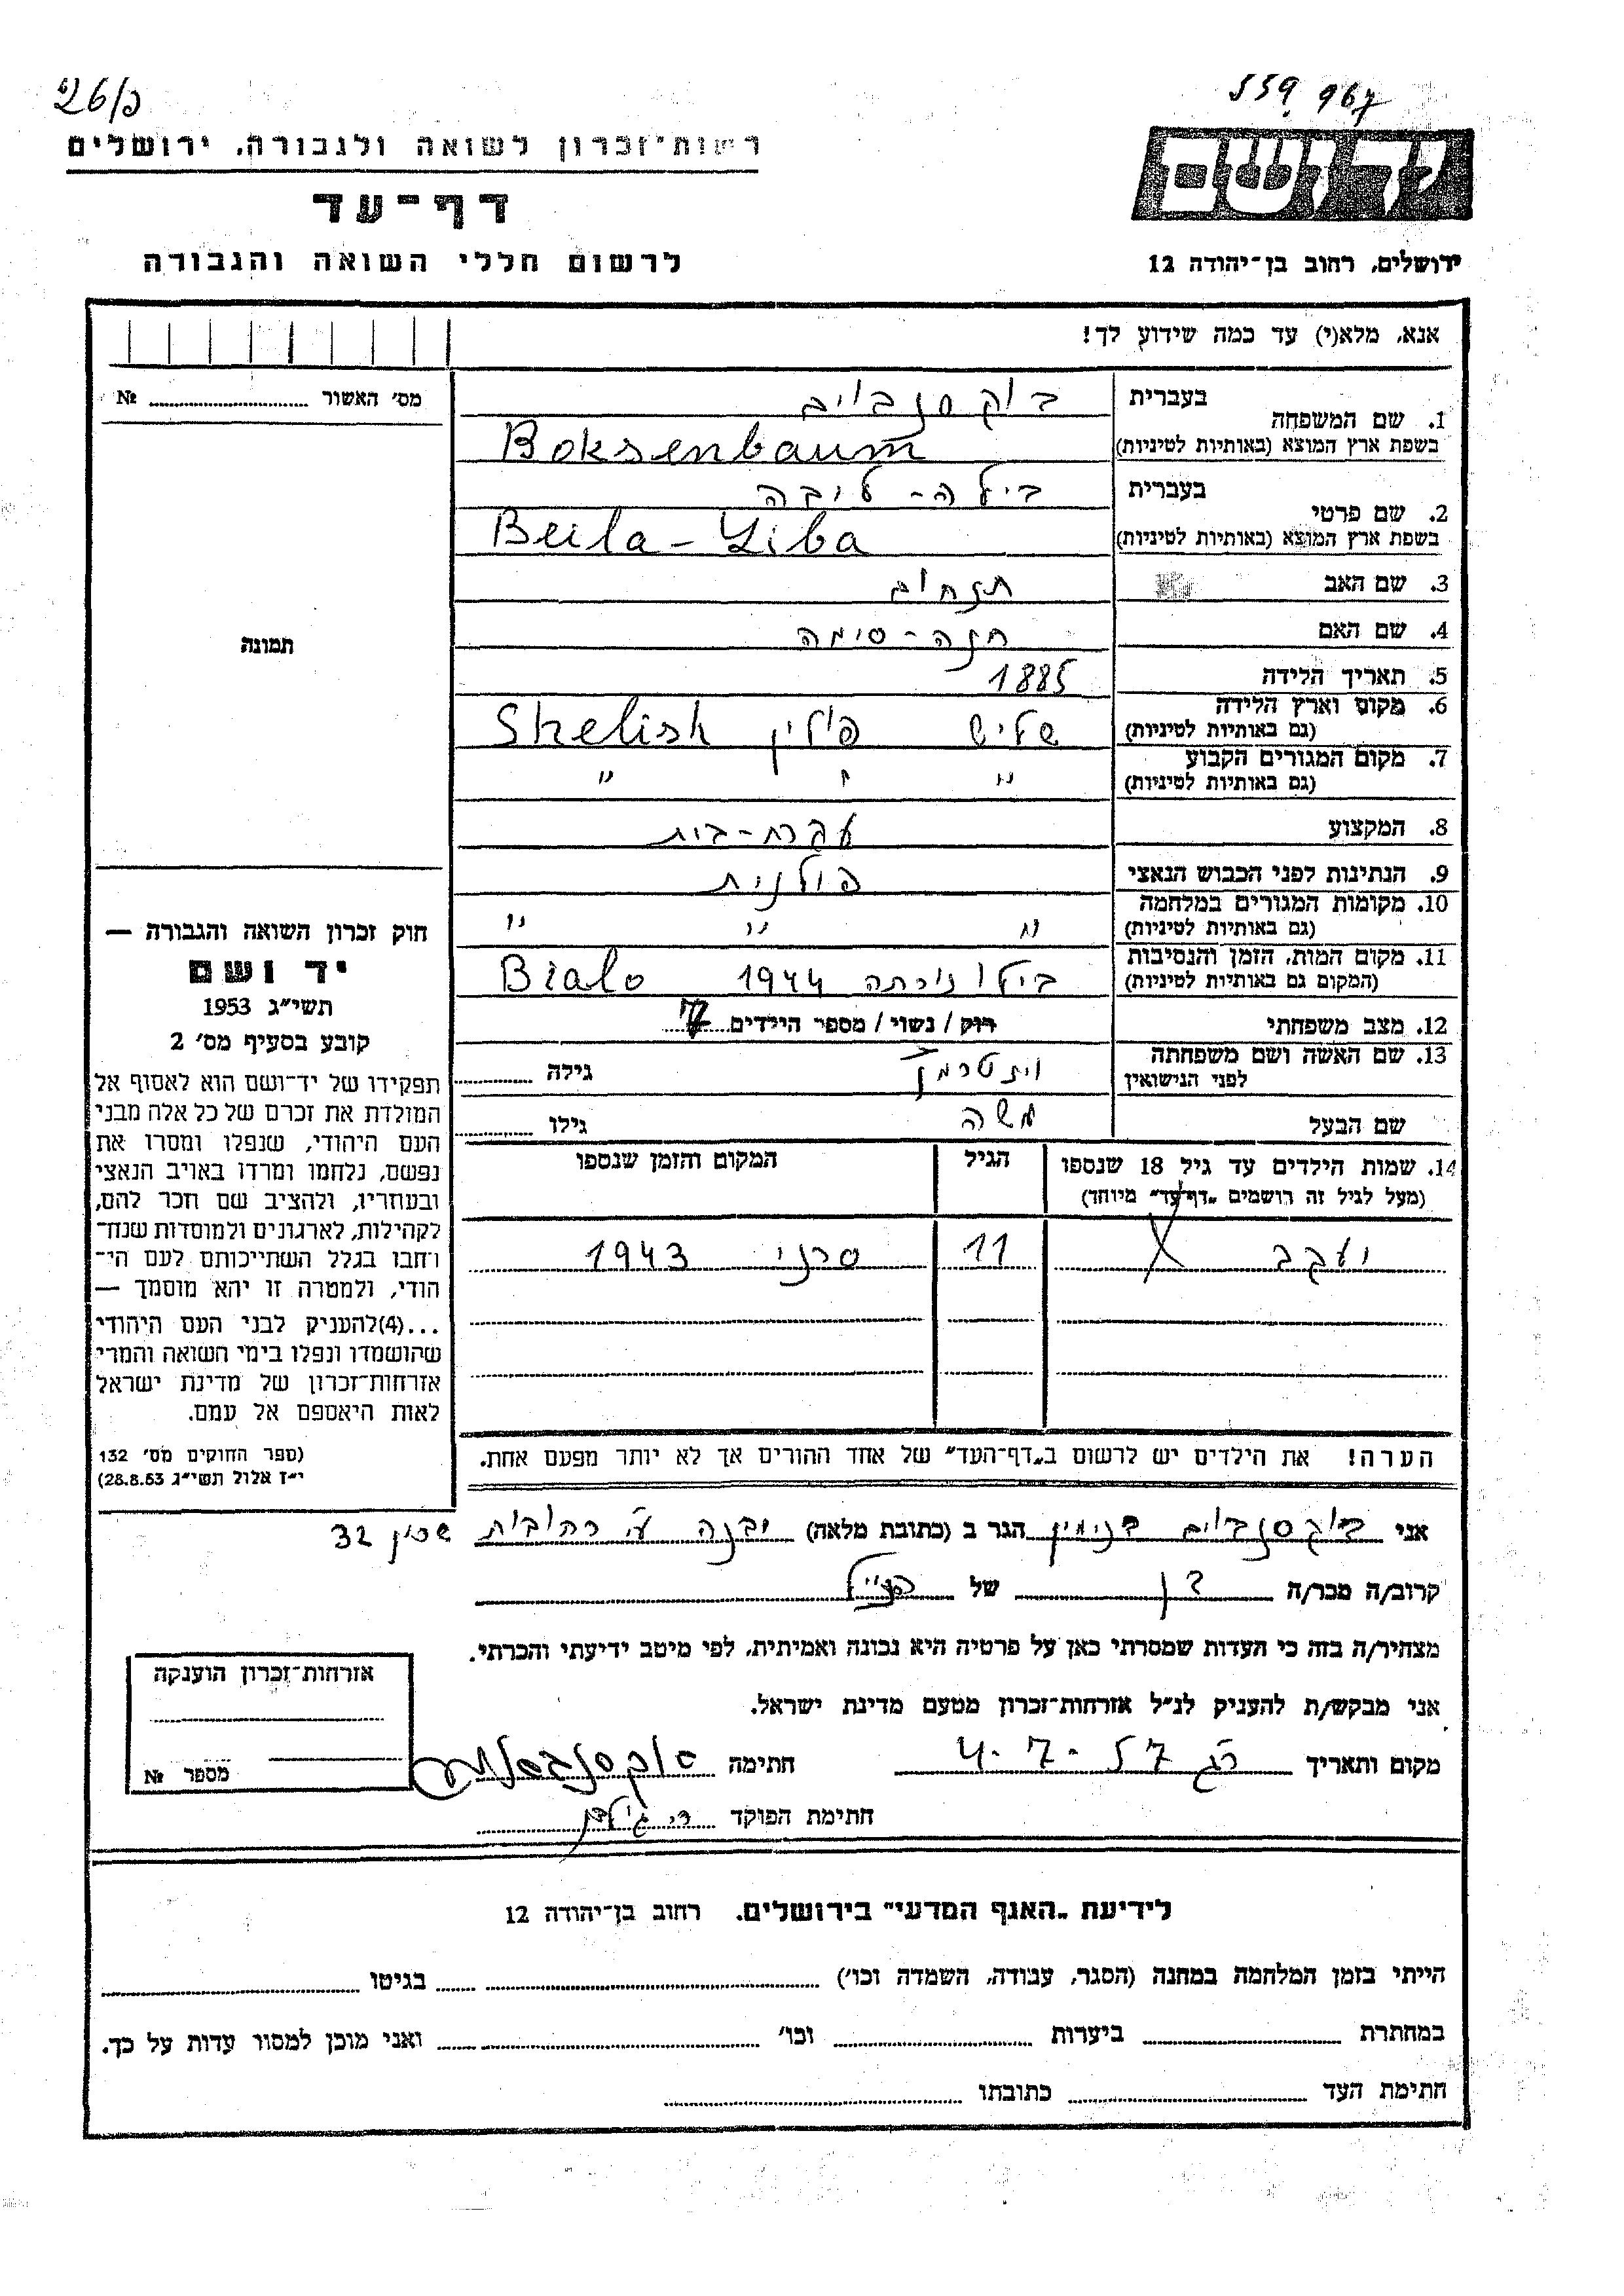 26/כ
559 967
רשות־זכרון לשואה ולגבורה, ירושלים
דף־עד
לרשום חללי השואה והגבורה
ירושלים, רחוב בן־יהודה 12
אנא, מלא(י) עד כמה שידוע לך!
מס׳ האשור № 
1. שם המשפחה
בעברית בוקסנבוים
בשפת ארץ המוצא (באותיות לטיניות) Boksenbaum
2. שם פרטי
בעברית בילה-ליבה
בשפת ארץ המוצא (באותיות לטיניות) Beila-Liba
3. שם האב תנחום
4. שם האם חנה-סימה
5. תאריך הלידה 1885
6. מקום וארץ הלידה
(גם באותיות לטיניות) שליש פולין Shelish
7. מקום המגורים הקבוע
(גם באותיות לטיניות) " " "
8. המקצוע עקרת-בית
9. הנתינות לפני הכבוש הנאצי פולנית
10. מקומות המגורים במלחמה
(גם באותיות לטיניות) " " "
11. מקום המות, הזמן והנסיבות
(המקום גם באותיות לטיניות) בילו נורתה 1944 Bialo
12. מצב משפחתי רוק / נשוי / מספר הילדים 7
13. שם האשה ושם משפחתה
לפני הנישואין גילה
שם הבעל משה גילו
14. שמות הילדים עד גיל 18 שנספו הגיל המקום והזמן שנספו
(מעל לגיל זה רושמים „דף־עד״ מיוחד)
יעקב 11 סרני 1943
הערה! את הילדים יש לרשום ב„דף־העד״ של אחד ההורים אך לא יותר מפעם אחת.
תמונה
חוק זכרון השואה והגבורה —
יד ושם
תשי״ג 1953
קובע בסעיף מס׳ 2
תפקידו של יד־ושם הוא לאסוף אל
המולדת את זכרם של כל אלה מבני
העם היהודי, שנפלו ומסרו את
נפשם, נלחמו ומרדו באויב הנאצי
ובעוזריו, ולהציב שם וזכר להם,
לקהילות, לארגונים ולמוסדות שנח־
רחבו בגלל השתייכותם לעם הי־
הודי, ולמטרה זו יהא מוסמך —
...(4) להעניק לבני העם היהודי
שהושמדו ונפלו בימי השואה והמרי
אזרחות־זכרון של מדינת ישראל
לאות היאספם אל עמם.
(ספר החוקים מס׳ 132
י״ז אלול תשי״ג 28.8.53)
אני בוקסנבוים בנימין הגר ב (כתובת מלאה) יבנה ע״י רחובות שכון 32
קרוב/ה מכר/ה בן של הנ״ל
מצהיר/ה בזה כי העדות שמסרתי כאן על פרטיה היא נכונה ואמיתית, לפי מיטב ידיעתי והכרתי.
אני מבקש/ת להעניק לנ״ל אזרחות־זכרון מטעם מדינת ישראל.
מקום ותאריך 4-7-57 חתימה
חתימת הפוקד
אזרחות־זכרון הוענקה
מספר №
לידיעת „האגף המדעי״ בירושלים. רחוב בן־יהודה 12
הייתי בזמן המלחמה במחנה (הסגר, עבודה, השמדה וכו׳) בגיטו
במחתרת ביערות וכו׳ ואני מוכן למסור עדות על כך.
חתימת העד כתובתו